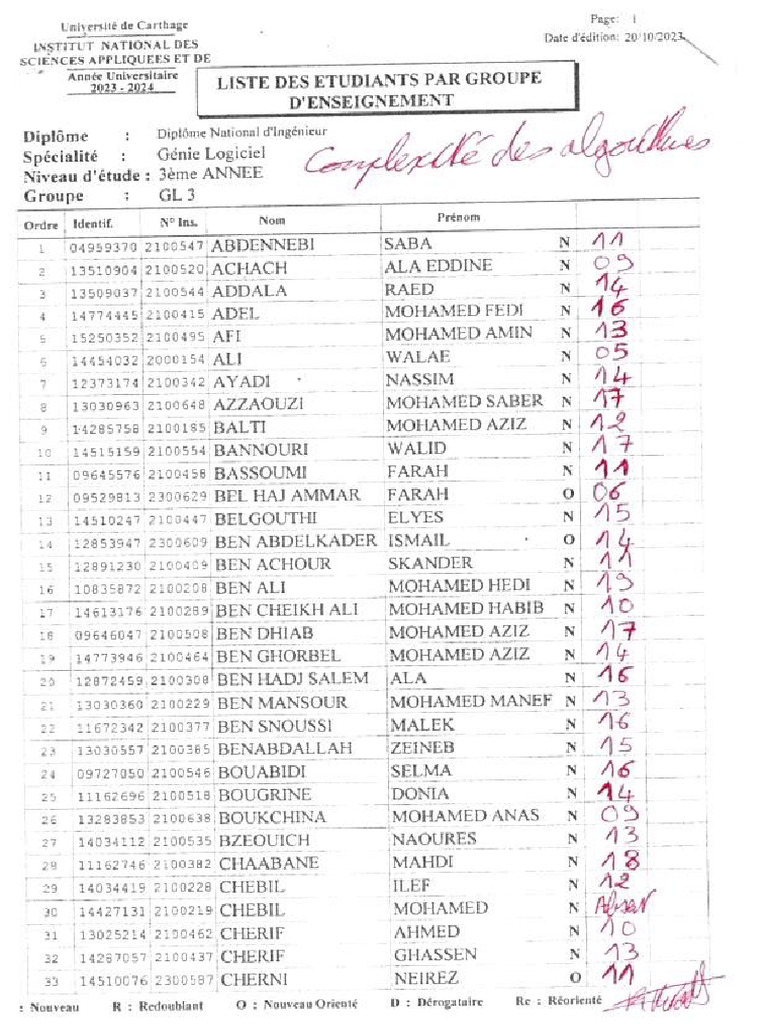 Université de Carthage
Page: 1
INSTITUT NATIONAL DES
Date d'édition: 20/10/2023
SCIENCES APPLIQUEES ET DE
Année Universitaire
2023 - 2024
LISTE DES ETUDIANTS PAR GROUPE
D'ENSEIGNEMENT
Complexité des algorithmes
Diplôme : Diplôme National d'Ingénieur
Spécialité : Génie Logiciel
Niveau d'étude : 3ème ANNEE
Groupe : GL 3
Ordre Identif. N° Ins. Nom Prénom
1 04959370 2100547 ABDENNEBI SABA N 11
2 13510904 2100520 ACHACH ALA EDDINE N 09
3 13509037 2100544 ADDALA RAED N 14
4 14774445 2100415 ADEL MOHAMED FEDI N 16
5 15250352 2100495 AFI MOHAMED AMIN N 13
6 14454032 2000154 ALI WALAE N 05
7 12373174 2100342 AYADI NASSIM N 14
8 13030963 2100648 AZZAOUZI MOHAMED SABER N 17
9 14285758 2100185 BALTI MOHAMED AZIZ N 12
10 14515159 2100554 BANNOURI WALID N 17
11 09645576 2100458 BASSOUMI FARAH N 11
12 09529813 2300629 BEL HAJ AMMAR FARAH O 06
13 14510247 2100447 BELGOUTHI ELYES N 15
14 12853947 2300609 BEN ABDELKADER ISMAIL O 14
15 12891230 2100409 BEN ACHOUR SKANDER N 11
16 10835872 2100208 BEN ALI MOHAMED HEDI N
17 14613176 2100289 BEN CHEIKH ALI MOHAMED HABIB N 10
18 09646047 2100508 BEN DHIAB MOHAMED AZIZ N 17
19 14773946 2100464 BEN GHORBEL MOHAMED AZIZ N 14
20 12872459 2100308 BEN HADJ SALEM ALA N 16
21 13030360 2100229 BEN MANSOUR MOHAMED MANEF N 13
22 11672342 2100377 BEN SNOUSSI MALEK N 16
23 13030557 2100385 BENABDALLAH ZEINEB N 15
24 09727050 2100546 BOUABIDI SELMA N 16
25 11162696 2100518 BOUGRINE DONIA N 14
26 13283853 2100638 BOUKCHINA MOHAMED ANAS N 09
27 14034112 2100535 BZEOUICH NAOURES N 13
28 11162746 2100382 CHAABANE MAHDI N 18
29 14034419 2100228 CHEBIL ILEF N 12
30 14427131 2100219 CHEBIL MOHAMED N Absent
31 13025214 2100462 CHERIF AHMED N 10
32 14287057 2100437 CHERIF GHASSEN N 13
33 14510076 2300587 CHERNI NEIREZ O 11
: Nouveau R : Redoublant O : Nouveau Orienté D : Dérogataire Re : Réorienté